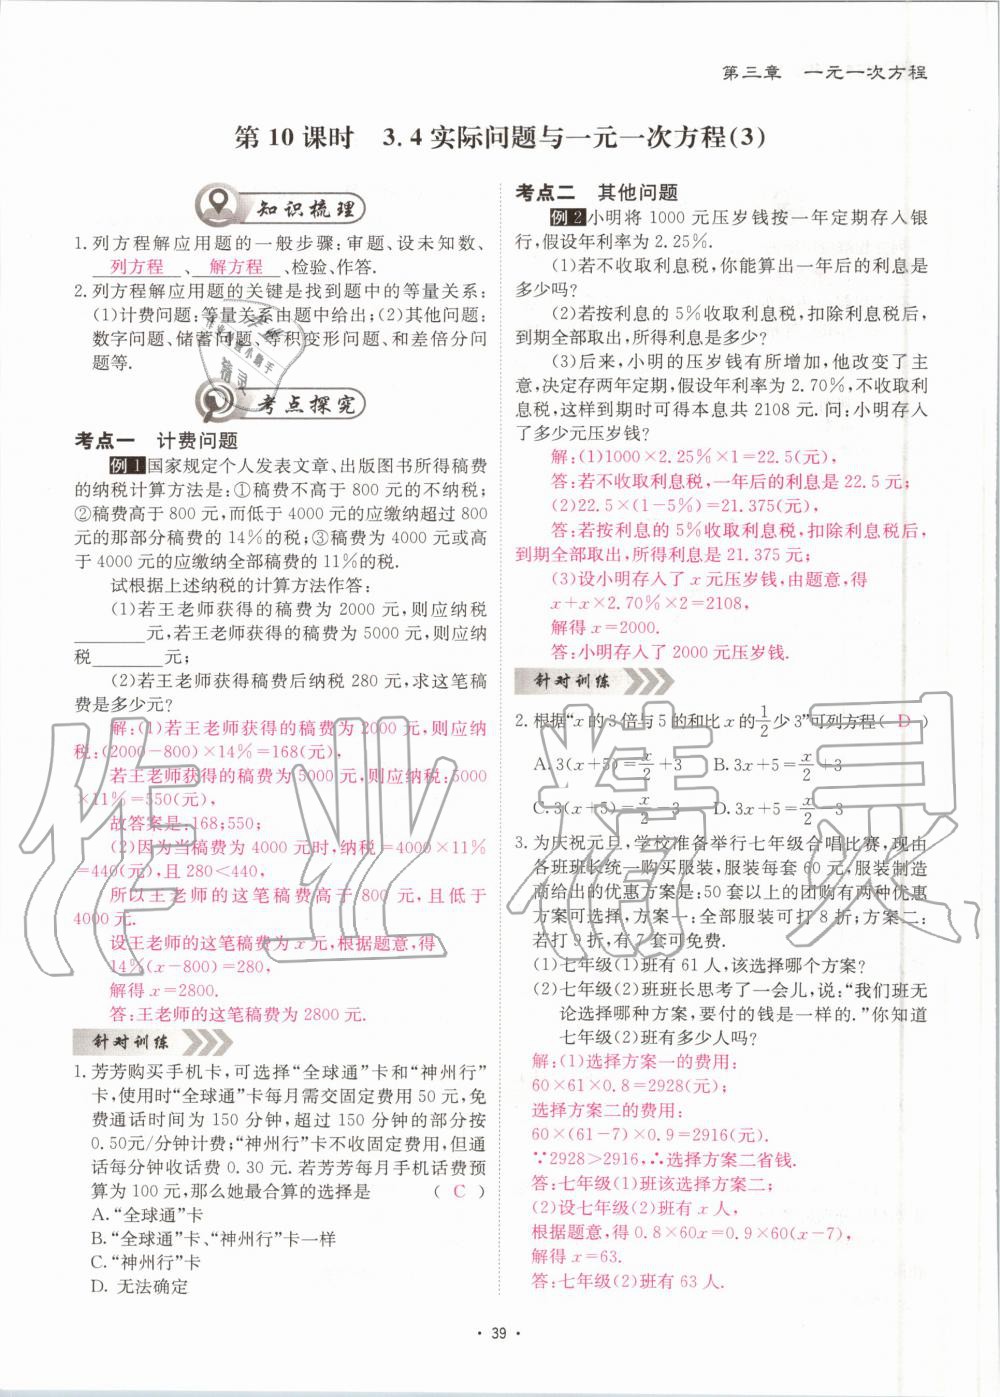 第三章 一元一次方程
第 10 课时 3.4 实际问题与一元一次方程(3)
知识梳理
1. 列方程解应用题的一般步骤:审题、设未知数、
列方程、解方程、检验、作答.
2. 列方程解应用题的关键是找到题中的等量关系:
(1)计费问题:等量关系由题中给出;(2)其他问题:
数字问题、储蓄问题、等积变形问题、和差倍分问
题等.
考点探究
考点一 计费问题
例1 国家规定个人发表文章、出版图书所得稿费
的纳税计算方法是:①稿费不高于 800 元的不纳税;
②稿费高于 800 元,而低于 4000 元的应缴纳超过 800
元的那部分稿费的 14%的税;③稿费为 4000 元或高
于 4000 元的应缴纳全部稿费的 11%的税.
试根据上述纳税的计算方法作答:
(1)若王老师获得的稿费为 2000 元,则应纳税
________元,若王老师获得的稿费为 5000 元,则应纳
税________元;
(2)若王老师获得稿费后纳税 280 元,求这笔稿
费是多少元?
解:(1)若王老师获得的稿费为 2000 元,则应纳
税:(2000-800)×14%=168(元),
若王老师获得的稿费为5000元,则应纳税:5000
×11%=550(元),
故答案是:168;550;
(2)因为当稿费为 4000 元时,纳税=4000×11%
=440(元),且 280<440,
所以王老师的这笔稿费高于 800 元,且低于
4000 元.
设王老师的这笔稿费为 x 元,根据题意,得
14%(x-800)=280,
解得 x=2800.
答:王老师的这笔稿费为 2800 元.
针对训练
1. 芳芳购买手机卡,可选择“全球通”卡和“神州行”
卡,使用时“全球通”卡每月需交固定费用 50 元,免
费通话时间为 150 分钟,超过 150 分钟的部分按
0.50元/分钟计费;“神州行”卡不收固定费用,但通
话每分钟收话费 0.30 元.若芳芳每月手机话费预
算为 100 元,那么她最合算的选择是 ( C )
A. “全球通”卡
B. “全球通”卡、“神州行”卡一样
C. “神州行”卡
D. 无法确定
考点二 其他问题
例2 小明将 1000 元压岁钱按一年定期存入银
行,假设年利率为 2.25%.
(1)若不收取利息税,你能算出一年后的利息是
多少吗?
(2)若按利息的 5%收取利息税,扣除利息税后,
到期全部取出,所得利息是多少?
(3)后来,小明的压岁钱有所增加,他改变了主
意,决定存两年定期,假设年利率为 2.70%,不收取利
息税,这样到期时可得本息共 2108 元.问:小明存入
了多少元压岁钱?
解:(1)1000×2.25%×1=22.5(元),
答:若不收取利息税,一年后的利息是 22.5 元;
(2)22.5×(1-5%)=21.375(元),
答:若按利息的 5%收取利息税,扣除利息税后,
到期全部取出,所得利息是 21.375 元;
(3)设小明存入了 x 元压岁钱,由题意,得
x+x×2.70%×2=2108,
解得 x=2000.
答:小明存入了 2000 元压岁钱.
针对训练
2. 根据“x 的 3 倍与 5 的和比 x 的 1/2 少 3”可列方程( D )
A. 3(x+5)=x/2+3 B. 3x+5=x/2+3
C. 3(x+5)=x/2-3 D. 3x+5=x/2-3
3. 为庆祝元旦,学校准备举行七年级合唱比赛,现由
各班班长统一购买服装,服装每套 60 元,服装制造
商给出的优惠方案是:50 套以上的团购有两种优惠
方案可选择,方案一:全部服装可打 8 折;方案二:
若打 9 折,有 7 套可免费.
(1)七年级(1)班有 61 人,该选择哪个方案?
(2)七年级(2)班班长思考了一会儿,说:“我们班无
论选择哪种方案,要付的钱是一样的.”你知道
七年级(2)班有多少人吗?
解:(1)选择方案一的费用:
60×61×0.8=2928(元);
选择方案二的费用:
60×(61-7)×0.9=2916(元).
∵2928>2916,∴选择方案二省钱.
答:七年级(1)班该选择方案二;
(2)设七年级(2)班有 x 人,
根据题意,得 0.8×60x=0.9×60(x-7),
解得 x=63.
答:七年级(2)班有 63 人.
· 39 ·
作业精灵